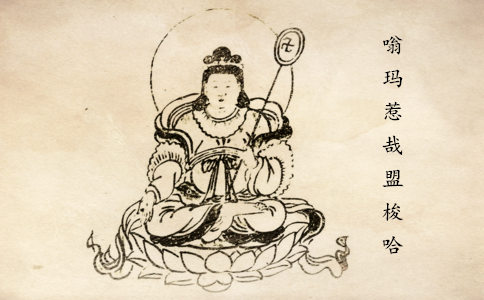 嗡玛惹哉盟梭哈